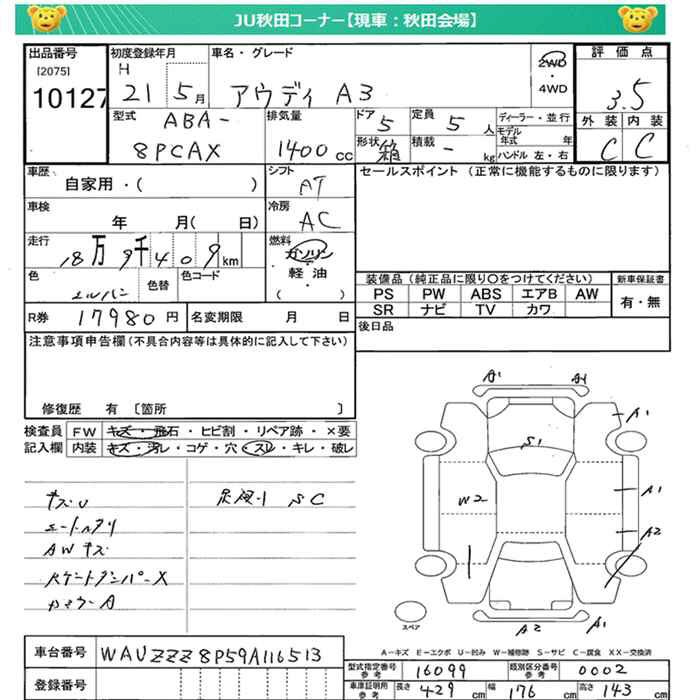 JU秋田コーナー【現車:秋田会場】
出品番号 [2075] 10127
初度登録年月 H 21 5月
車名・グレード アウディ A3
2WD・4WD
評価点 3.5
外装 C 内装 C
型式 ABA-8PCAX
排気量 1400cc
ドア 5 定員 5人
形状 箱 積載 - kg
ディーラー・並行
モデル年式 年
ハンドル 左・右
車歴 自家用・( )
シフト AT
車検 年 月( 日)
冷房 AC
走行 18万9千409km
燃料 ガソリン・軽油・( )
色 色替 色コード
R券 17980円 名変期限 月 日
セールスポイント (正常に機能するものに限ります)
装備品(純正品に限り○をつけてください) 新車保証書
PS PW ABS エアB AW 有・無
SR ナビ TV カワ
後日品
注意事項申告欄(不具合内容等は具体的に記入して下さい)
修復歴 有 〔箇所 〕
検査員記入欄 FW キズ・飛石・ヒビ割・リペア跡・×要
内装 キズ・汚レ・コゲ・穴・スレ・キレ・破レ
キズU
シートスリ
AWキズ
足廻り SC
A1 A1
A1
S1
W2
A1
A2
A2 A1
スペア
A-キズ E-エクボ U-凹み W-補修跡 S-サビ C-腐食 XX-交換済
車台番号 WAUZZZ8P59A116513
登録番号
型式指定番号 参考 16099 類別区分番号 参考 0002
車庫証明用 参考 長さ 429cm 幅 176cm 高さ 143cm